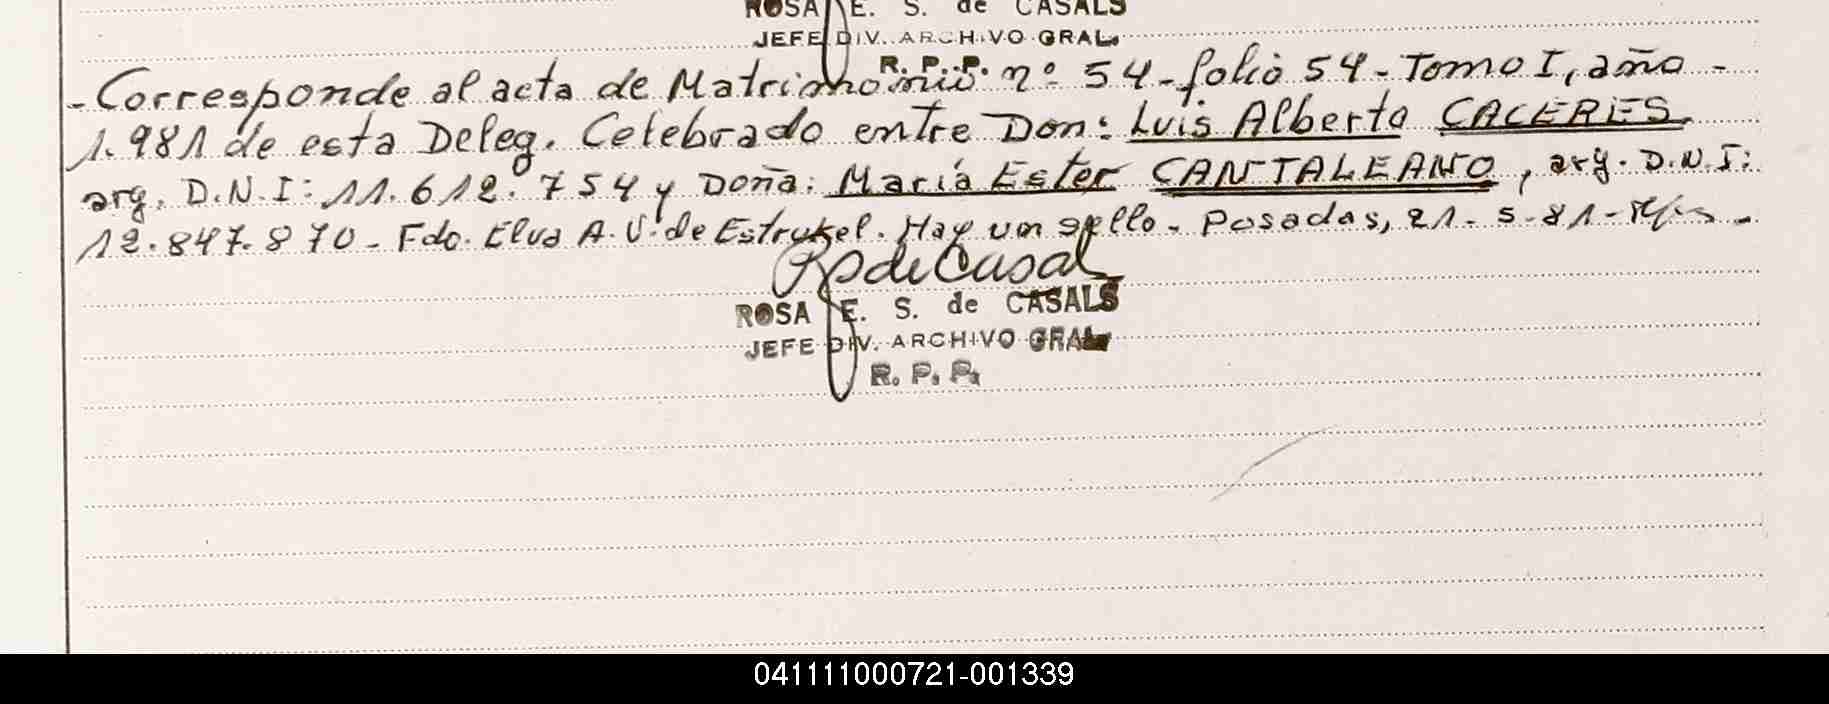 ROSA E. S. de CASALS
JEFE DIV. ARCHIVO GRAL.
R. P. P.
- Corresponde al acta de Matrimonio nº 54 - folio 54 - Tomo I, año -
1.981 de esta Deleg. Celebrado entre Don: Luis Alberto CACERES.
arg. D.N.I: 11.612.754 y Doña: María Ester CANTALEANO, arg. D.N.I:
12.847.870 - Fdo. Elva A. V. de Estrukel. Hay un sello - Posadas, 21-5-81-
ROSA E. S. de CASALS
JEFE DIV. ARCHIVO GRAL
R. P. P.
041111000721-001339